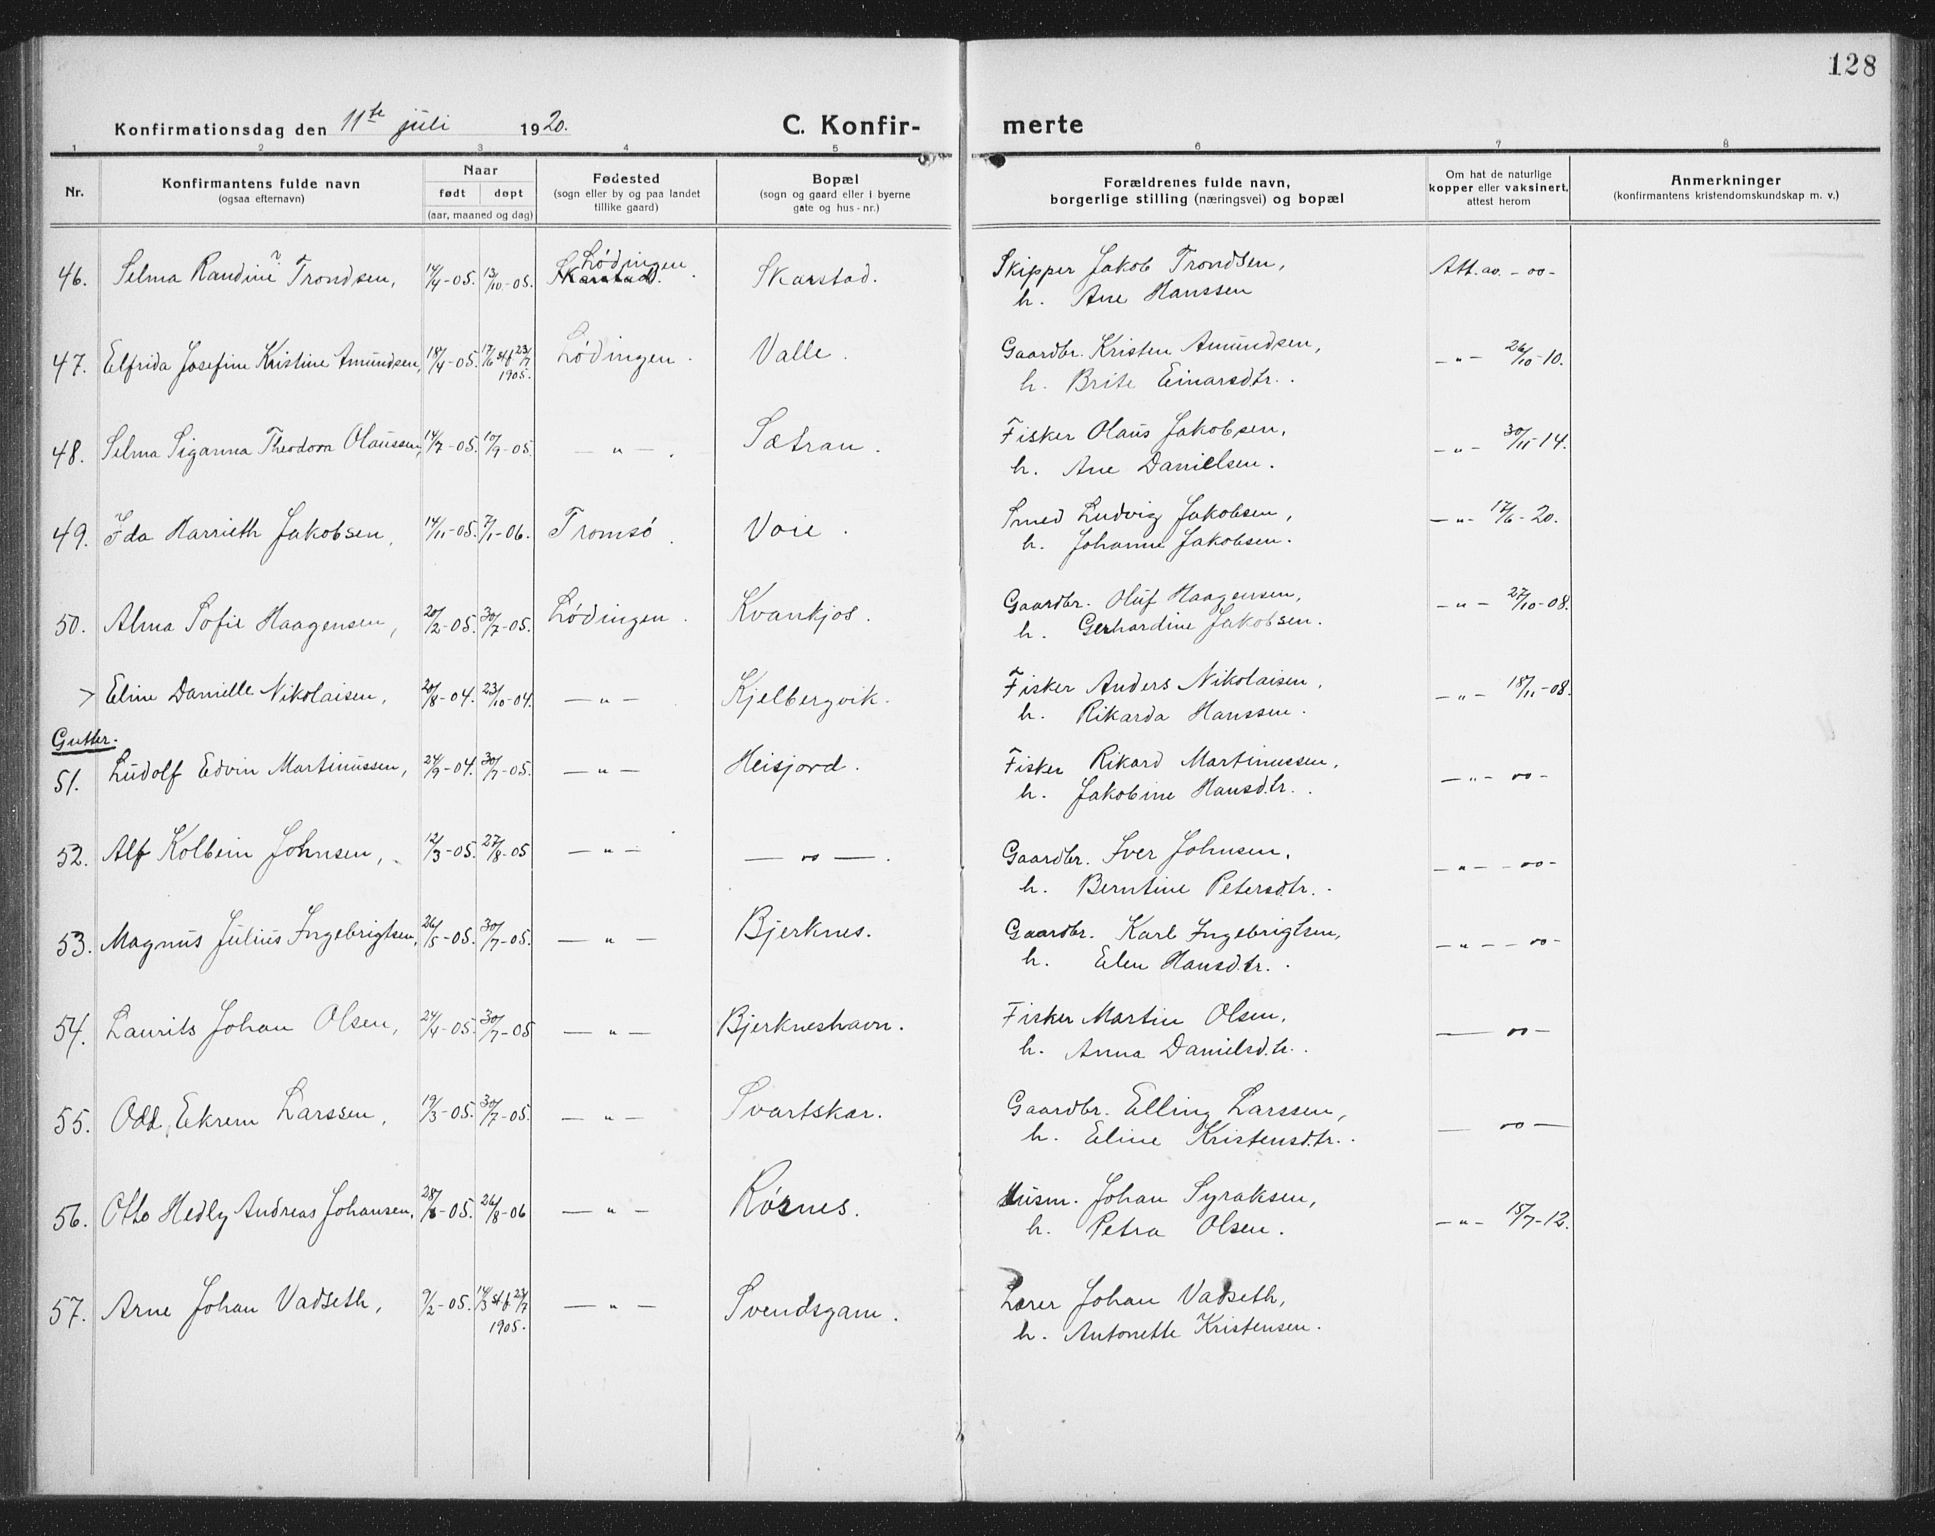 128
Konfirmationsdag den 11te juli 1920.
C. Konfir- merte
1 2 3 4 5 6 7 8
Nr.
Konfirmantens fulde navn
(ogsaa efternavn)
Naar
født døpt
(aar, maaned og dag)
Fødested
(sogn eller by og paa landet
tillike gaard)
Bopæl
(sogn og gaard eller i byerne
gate og hus-nr.)
Forældrenes fulde navn,
borgerlige stilling (næringsvei) og bopæl
Om hat de naturlige
kopper eller vaksinert,
attest herom
Anmerkninger
(konfirmantens kristendomskundskap m. v.)
46. Selma Randine Trondsen, 14/4-05. 13/10-05. Lødingen. Skarstad. Skipper Jakob Trondsen, Att. av. -oo-
h. Ane Hanssen
47. Elfrida Josefine Kristine Amundsen, 18/4-05. 17/6 stf 23/7 1905. Lødingen. Valle. Gaardbr. Kristen Amundsen, -"- 26/10-10.
h. Brite Einarsdtr.
48. Selma Siganna Theodora Olaussen, 14/7-05. 10/9-05. -"-. Sætran. Fisker Olaus Jakobsen, -"- 30/11-14.
h. Ane Danielsen.
49. Ida Harrieth Jakobsen, 14/11-05. 7/1-06. Tromsø. Voie. Smed Ludvig Jakobsen, -"- 17/6-20.
h. Johanne Jakobsen.
50. Alma Sofie Haagensen, 20/2-05. 30/7-05. Lødingen. Kvankjos. Gaardbr. Oluf Haagensen, -"- 27/10-08.
h. Gerhardine Jakobsen.
> Eline Danielle Nikolaisen, 20/8-04. 23/10-04. -"- Kjelbergvik. Fisker Anders Nikolaisen, -"- 18/11-08.
h. Rikarda Hanssen.
Gutter.
51. Ludolf Edvin Martinussen, 24/9-04. 30/7-05. -"- Heisjord. Fisker Rikard Martinussen, -"- oo-
h. Jakobine Hansdtr.
52. Alf Kolbein Johnsen, 12/3-05. 27/8-05 -"- -oo-. Gaardbr. Iver Johnsen, -"- -oo-
h. Berntine Petersdtr.
53. Magnus Julius Ingebrigtsen, 26/5-05. 30/7-05. -"- Bjerknes. Gaardbr. Karl Ingebrigtsen, -"- -oo-
h. Elen Hansdtr.
54. Laurits Johan Olsen, 24/4-05. 30/7-05 -"- Bjerkneshavn. Fisker Martin Olsen, - oo-
h. Anna Danielsdtr.
55. Odd Ekrem Larssen, 19/3-05. 30/7-05. -"- Svartskar. Gaardbr. Elling Larssen, - oo -
h. Eline Kristensdtr.
56. Otto Hedly Andreas Johansen, -05. 26/8-06 -"- Rørnes. Husm. Johan Syraksen, -"- 15/7-12.
h. Petra Olsen.
57. Arne Johan Vadseth, 9/2-05. 14/3 stf 23/7 1905. -"- Svendsgam. Lærer Johan Vadseth,
h. Antonette Kristensen.